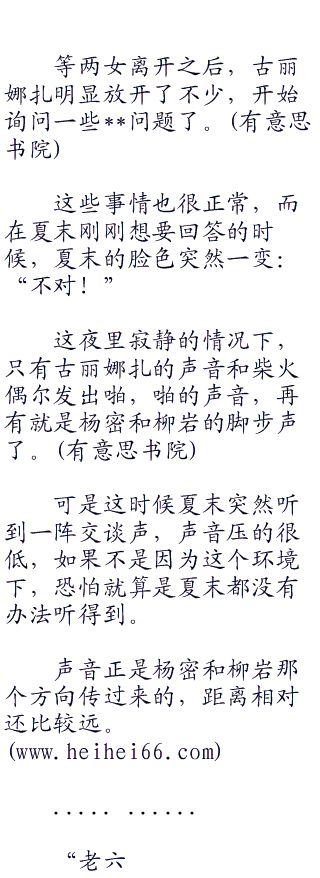 等两女离开之后，古丽
娜扎明显放开了不少，开始
询问一些**问题了。(有意思
书院)
这些事情也很正常，而
在夏末刚刚想要回答的时
候，夏末的脸色突然一变：
“不对！”
这夜里寂静的情况下，
只有古丽娜扎的声音和柴火
偶尔发出啪，啪的声音，再
有就是杨密和柳岩的脚步声
了。(有意思书院)
可是这时候夏末突然听
到一阵交谈声，声音压的很
低，如果不是因为这个环境
下，恐怕就算是夏末都没有
办法听得到。
声音正是杨密和柳岩那
个方向传过来的，距离相对
还比较远。
(www.heihei66.com)
..... ......
“老六